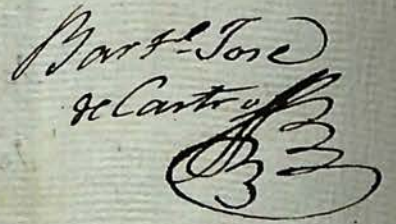 Bart.l Jose
de Castro